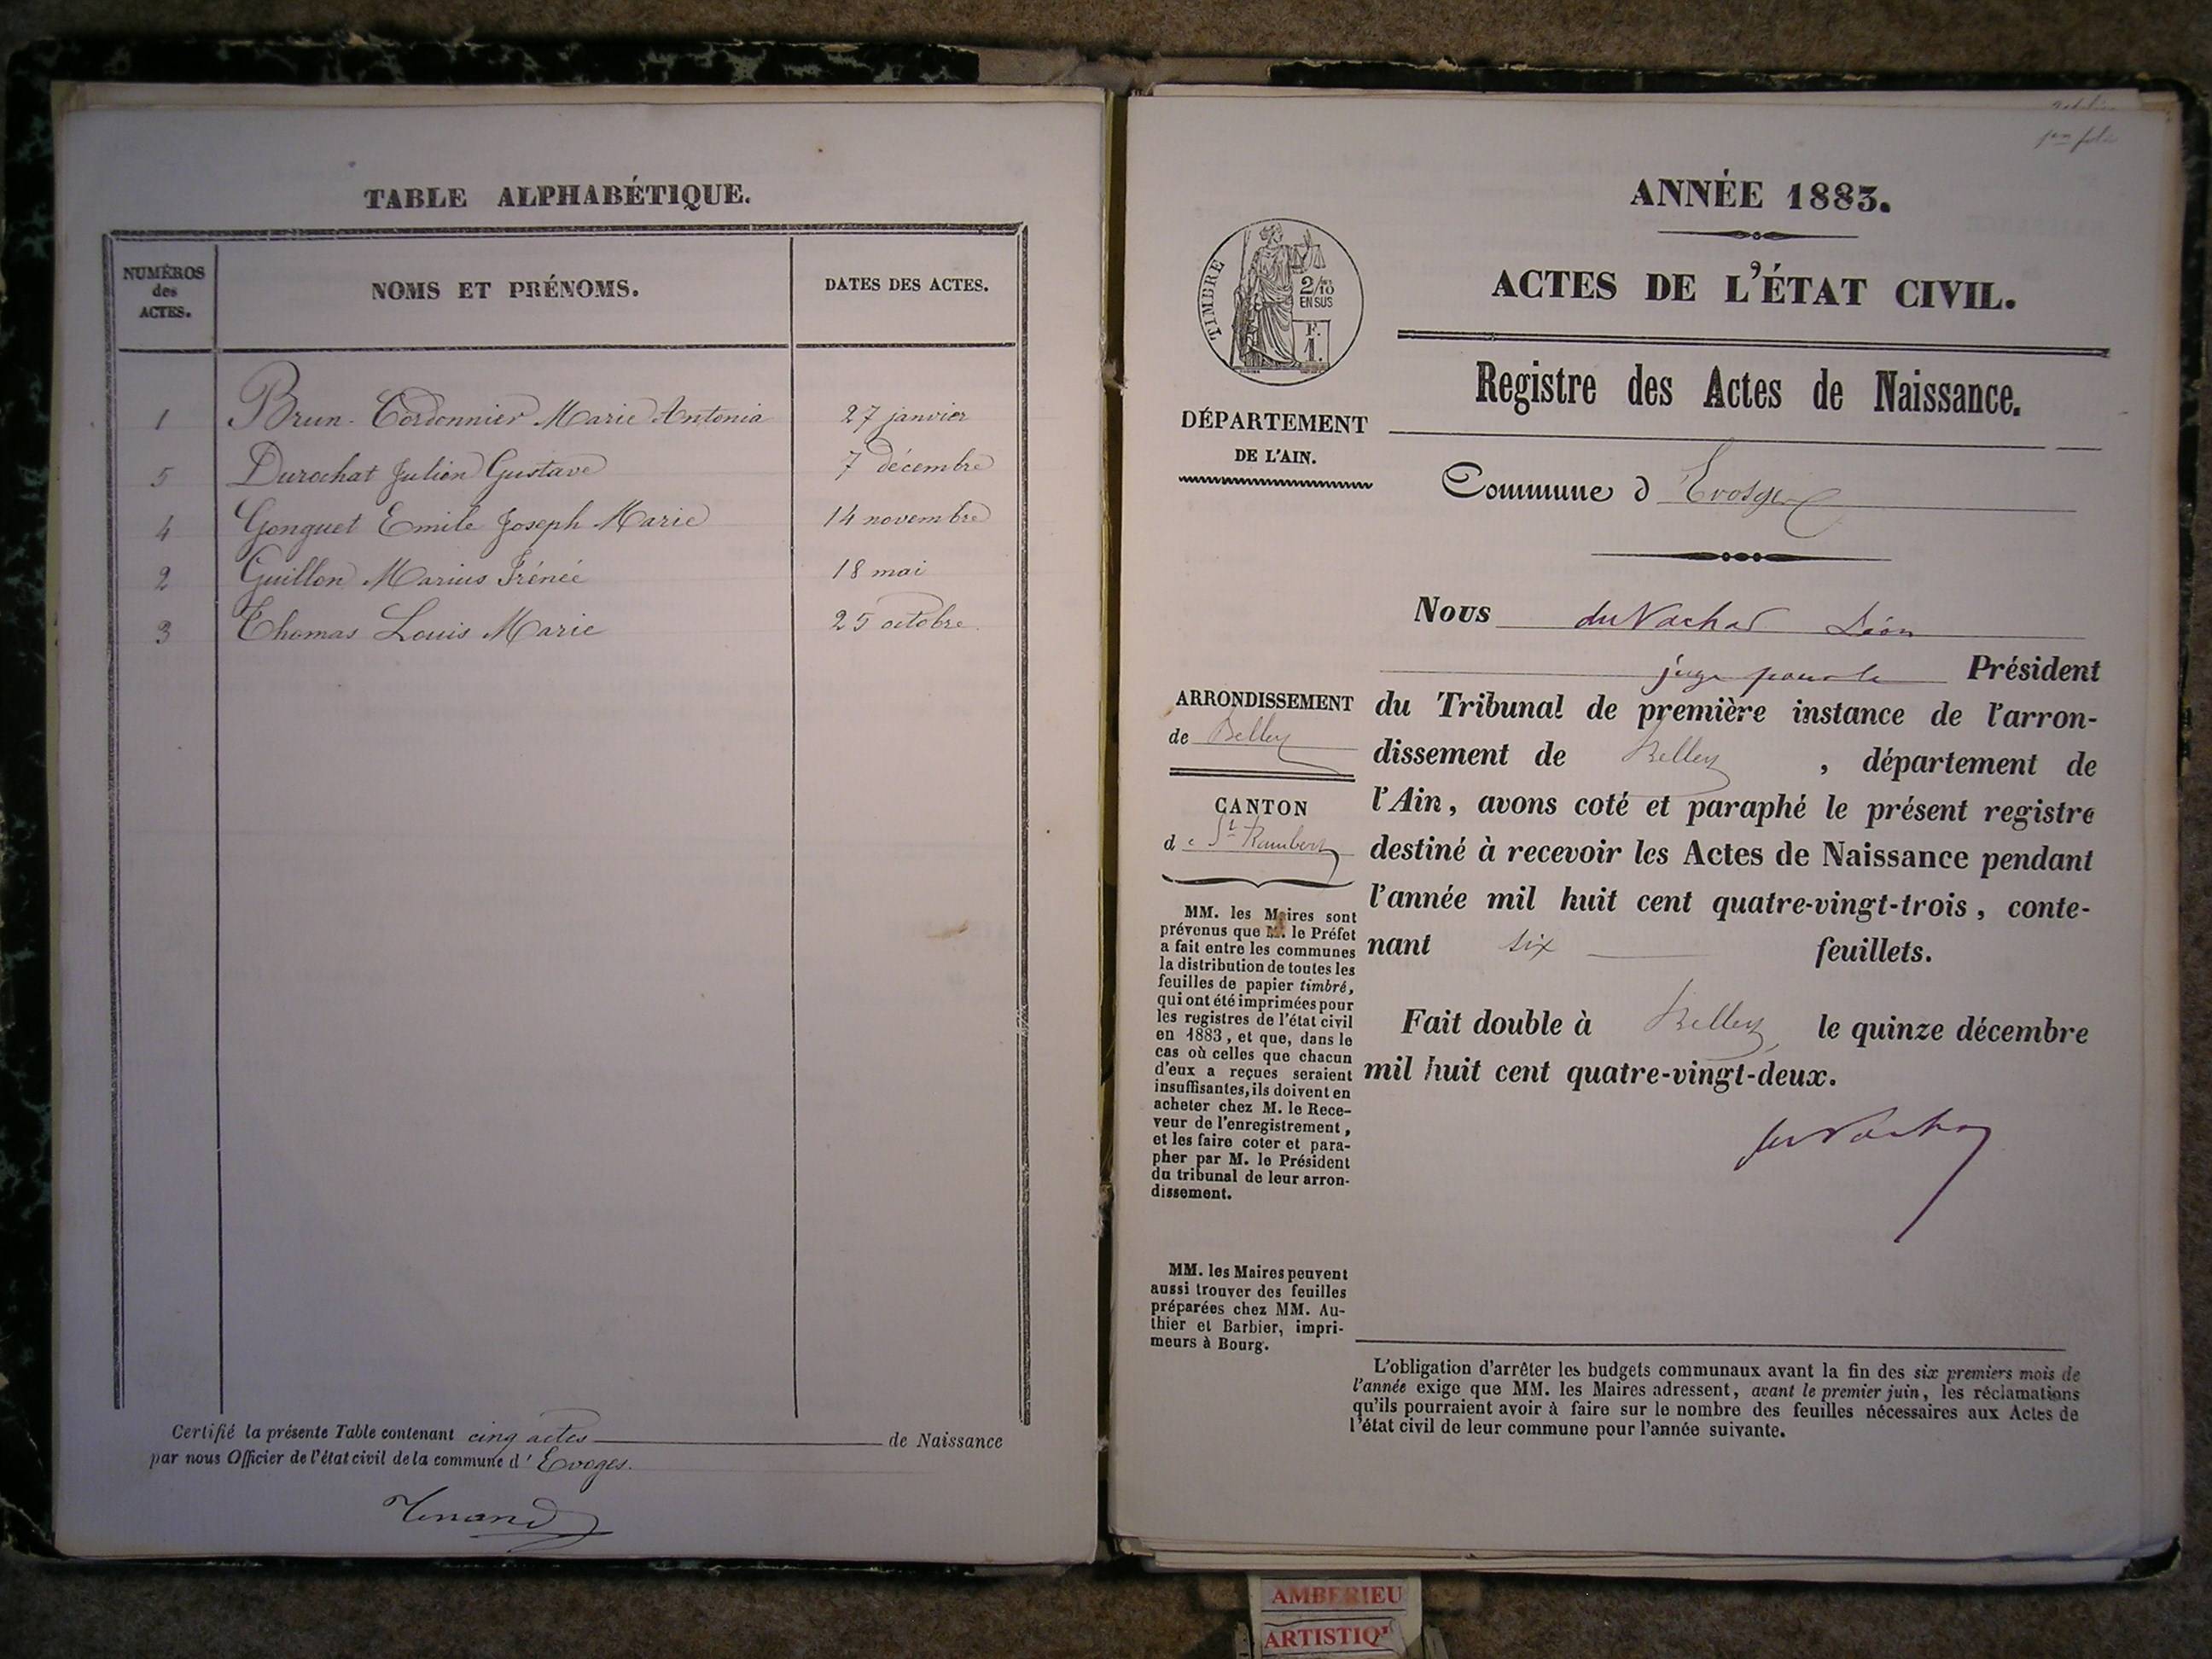 TABLE ALPHABÉTIQUE.
NUMÉROS des ACTES. NOMS ET PRÉNOMS. DATES DES ACTES.
1 Brun-Cordonnier Marie Antonia 27 janvier
5 Durochat Julien Gustave 7 décembre
4 Gonguet Emile Joseph Marie 14 novembre
2 Guillon Marius Irénée 18 mai
3 Thomas Louis Marie 25 octobre.
Certifié la présente Table contenant cinq actes de Naissance
par nous Officier de l'état civil de la commune d' Evoges.
Tenand
1er
ANNÉE 1883.
ACTES DE L'ÉTAT CIVIL.
TIMBRE
2/10
EN SUS
F.
1.
Registre des Actes de Naissance.
DÉPARTEMENT
DE L'AIN.
Commune d Evosges
Nous du Vachat Léon
juge pour le Président
du Tribunal de première instance de l'arron-
dissement de Belley, département de
l'Ain, avons coté et paraphé le présent registre
destiné à recevoir les Actes de Naissance pendant
l'année mil huit cent quatre-vingt-trois, conte-
nant six feuillets.
Fait double à Belley, le quinze décembre
mil huit cent quatre-vingt-deux.
du Vachat
ARRONDISSEMENT
de Belley
CANTON
de St Rambert
MM. les Maires sont
prévenus que M. le Préfet
a fait entre les communes
la distribution de toutes les
feuilles de papier timbré,
qui ont été imprimées pour
les registres de l'état civil
en 1883, et que, dans le
cas où celles que chacun
d'eux a reçues seraient
insuffisantes, ils doivent en
acheter chez M. le Rece-
veur de l'enregistrement,
et les faire coter et para-
pher par M. le Président
du tribunal de leur arron-
dissement.
MM. les Maires peuvent
aussi trouver des feuilles
préparées chez MM. Au-
thier et Barbier, impri-
meurs à Bourg.
L'obligation d'arrêter les budgets communaux avant la fin des six premiers mois de
l'année exige que MM. les Maires adressent, avant le premier juin, les réclamations
qu'ils pourraient avoir à faire sur le nombre des feuilles nécessaires aux Actes de
l'état civil de leur commune pour l'année suivante.
AMBERIEU
ARTISTIQ